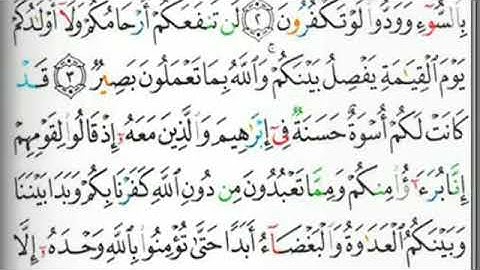 بِٱلسُّوٓءِ وَوَدُّوا۟ لَوْ تَكْفُرُونَ ﴿٢﴾ لَن تَنفَعَكُمْ أَرْحَامُكُمْ وَلَآ أَوْلَٰدُكُمْ
يَوْمَ ٱلْقِيَٰمَةِ يَفْصِلُ بَيْنَكُمْ ۚ وَٱللَّهُ بِمَا تَعْمَلُونَ بَصِيرٌ ﴿٣﴾ قَدْ
كَانَتْ لَكُمْ أُسْوَةٌ حَسَنَةٌ فِىٓ إِبْرَٰهِيمَ وَٱلَّذِينَ مَعَهُۥٓ إِذْ قَالُوا۟ لِقَوْمِهِمْ
إِنَّا بُرَءَٰٓؤُا۟ مِنكُمْ وَمِمَّا تَعْبُدُونَ مِن دُونِ ٱللَّهِ كَفَرْنَا بِكُمْ وَبَدَا بَيْنَنَا
وَبَيْنَكُمُ ٱلْعَدَٰوَةُ وَٱلْبَغْضَآءُ أَبَدًا حَتَّىٰ تُؤْمِنُوا۟ بِٱللَّهِ وَحْدَهُۥٓ إِلَّا